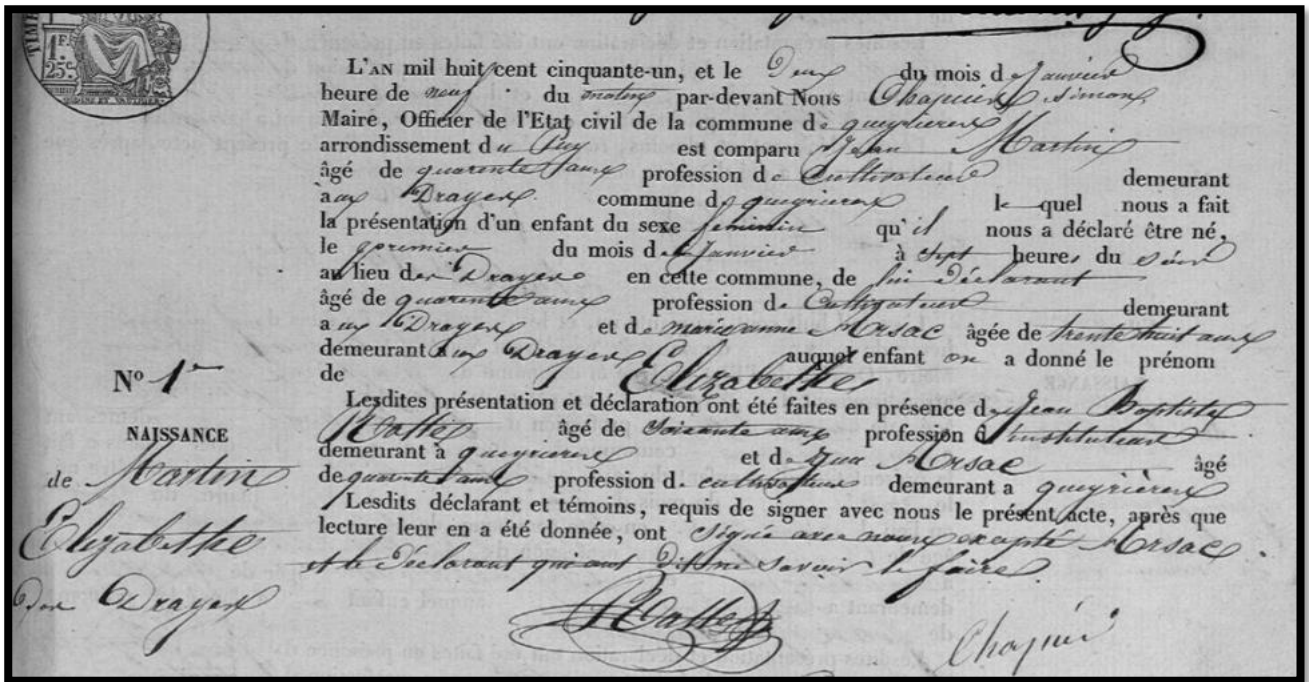 TIM
1F.
25c.
L'AN mil huit cent cinquante-un, et le Deux du mois de Janvier
heure de neuf du matin par-devant Nous Chapuier Simon
Maire, Officier de l'Etat civil de la commune de queyrieres
arrondissement du Puy est comparu Jean Martin
âgé de quarente ans profession de Cultivateur demeurant
aux Drayes commune de queyrieres le quel nous a fait
la présentation d'un enfant du sexe feminin qu'il nous a déclaré être né,
le premier du mois de Janvier à Sept heures du soir
au lieu des Drayes en cette commune, de lui déclarant
âgé de quarente ans profession de Cultivateur demeurant
aux Drayes et de marie anne Arsac âgée de trente huit ans
demeurant aux Drayes auquel enfant on a donné le prénom
de Elizabethe
Lesdites présentation et déclaration ont été faites en présence de Jean Baptiste
âgé de soixante ans profession d instituteur
demeurant à queyrieres et de Jean Arsac âgé
de quarente ans profession de cultivateur demeurant a queyrières
Lesdits déclarant et témoins, requis de signer avec nous le présent acte, après que
lecture leur en a été donnée, ont Signé avec nous excepté Arsac
et le déclarant qui ont dit ne savoir le faire.
Nº 1er
NAISSANCE
de Martin
Elizabethe
des Drayes